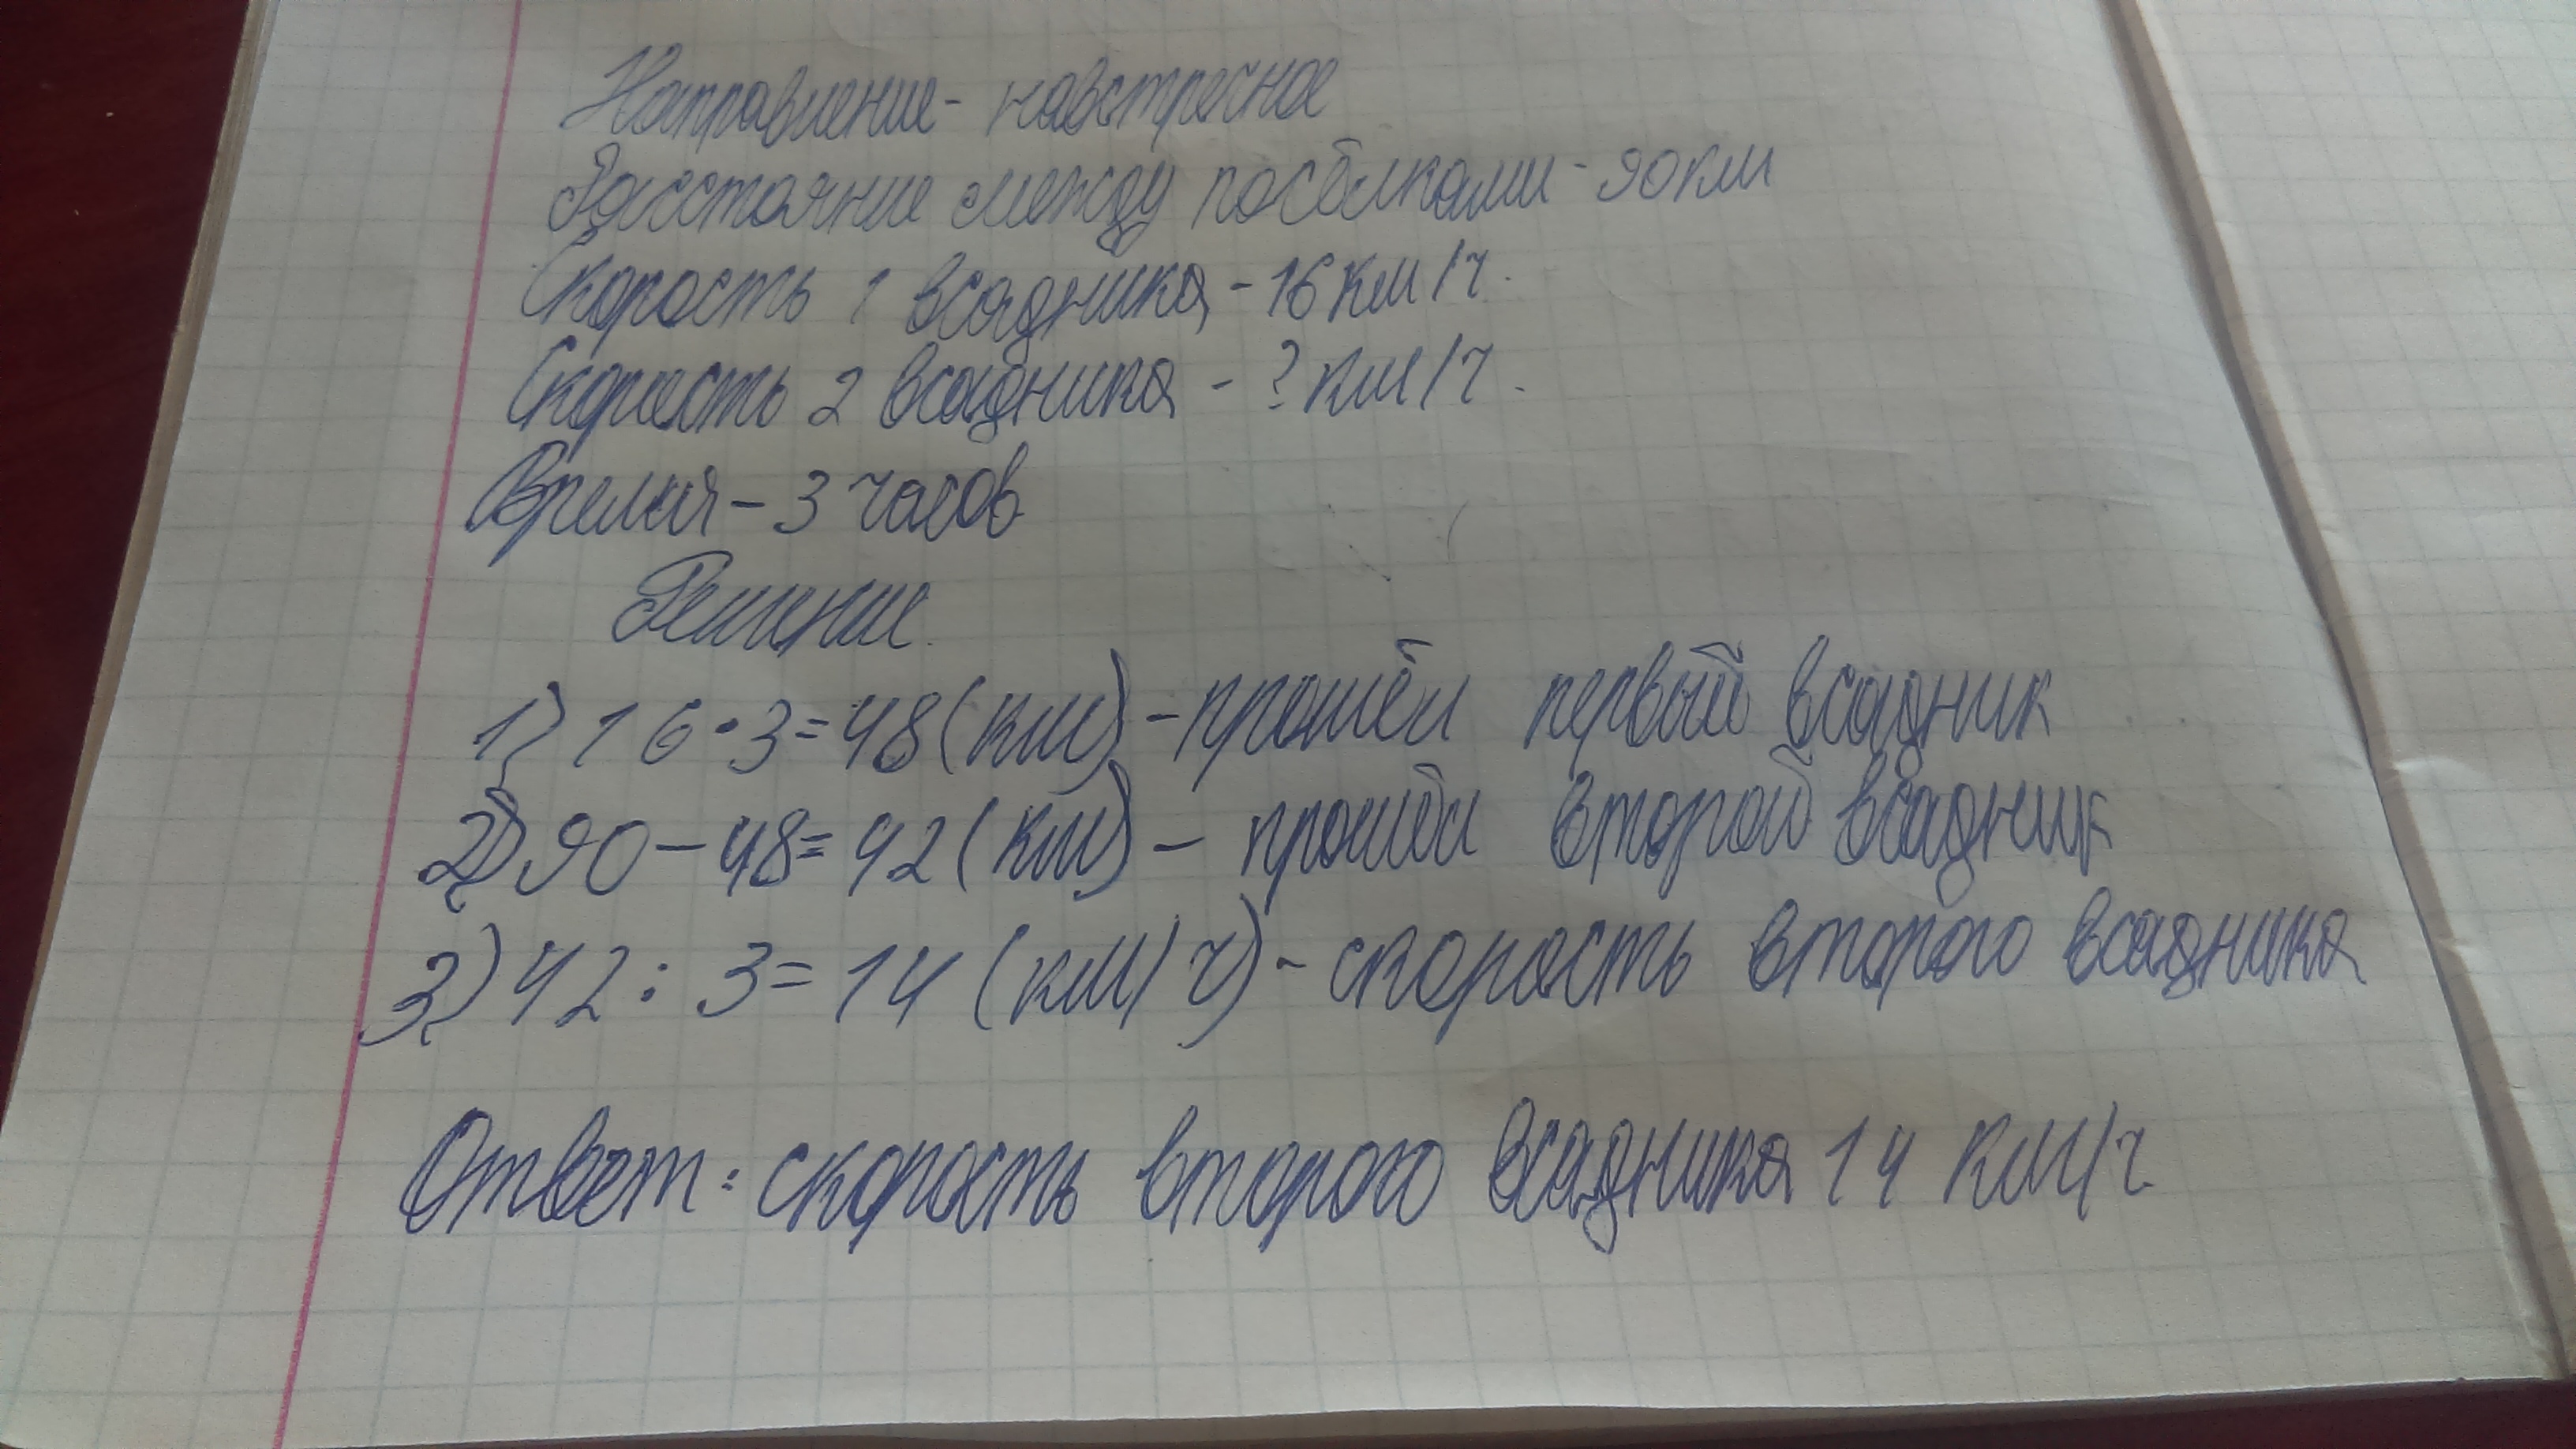 Направление - навстречное
Расстояние между посёлками - 90 км
Скорость 1 всадника - 16 км/ч.
Скорость 2 всадника - ? км/ч.
Время - 3 часов
Решение.
1) 16 · 3 = 48 (км) - прошёл первый всадник
2) 90 - 48 = 42 (км) - прошёл второй всадник
3) 42 : 3 = 14 (км/ч) - скорость второго всадника
Ответ: скорость второго всадника 14 км/ч